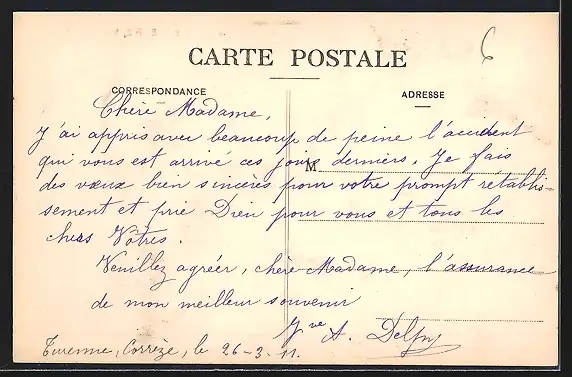 CARTE POSTALE
CORRESPONDANCE
ADRESSE
M
Chère Madame,
J'ai appris avec beaucoup de peine l'accident
qui vous est arrivé ces jours derniers. Je fais
des vœux bien sincères pour votre prompt rétablis-
sement et prie Dieu pour vous et tous les
chers Vôtres.
Veuillez agréer, chère Madame, l'assurance
de mon meilleur souvenir
Vve A.
Turenne, Corrèze, le 26-3-11.